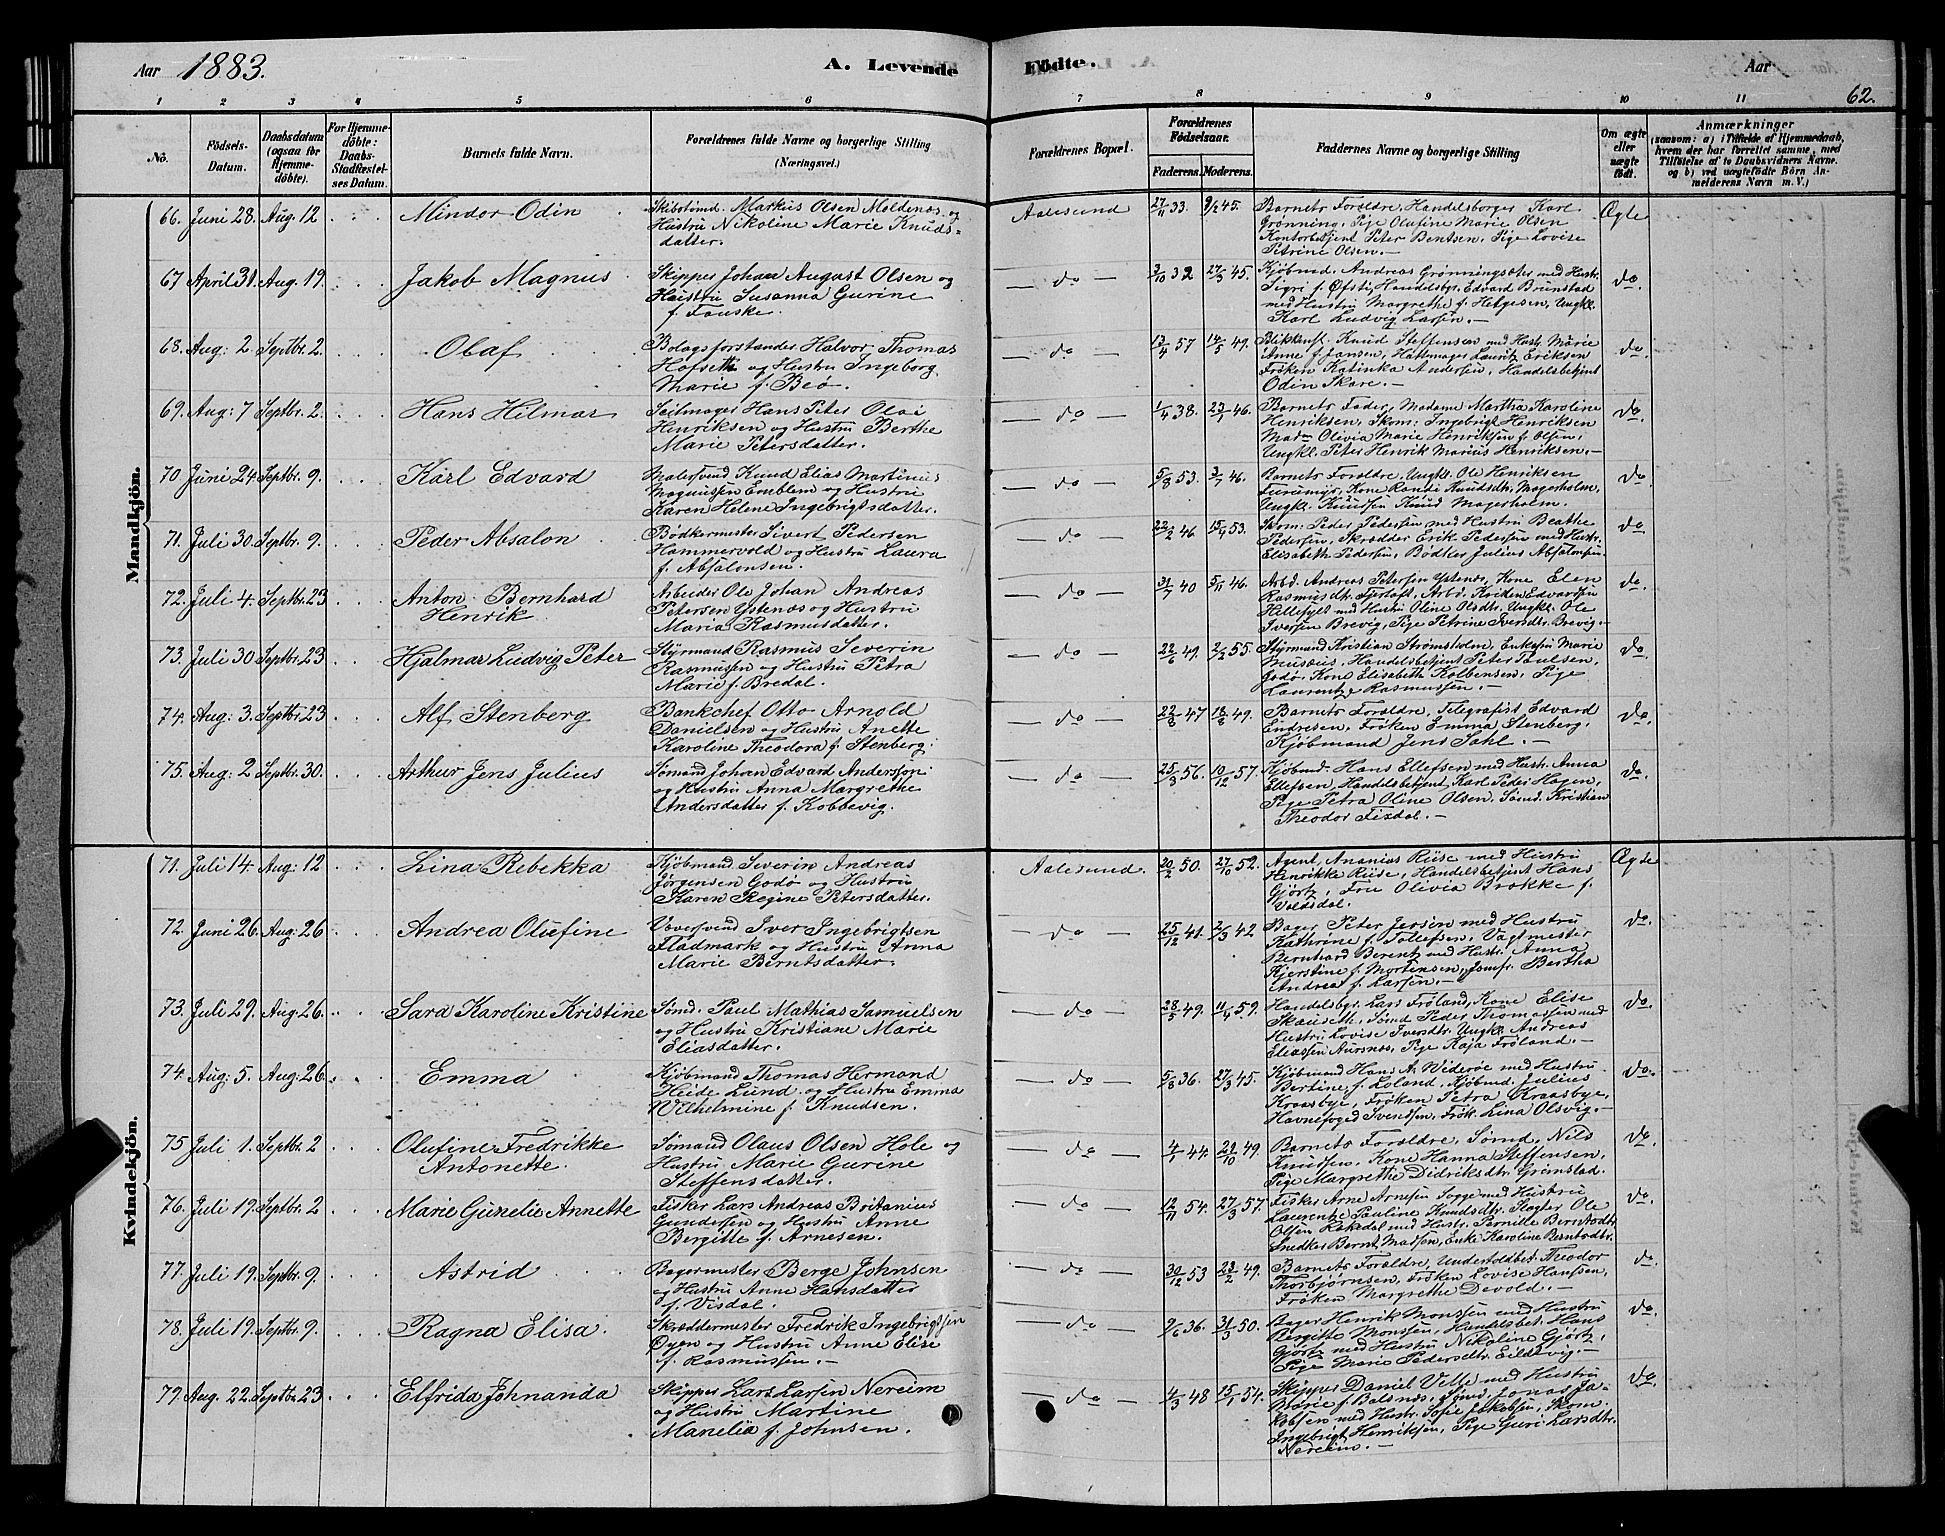 Aar 1883. A. Levende Födte. Aar 62.
1 2 3 4 5 6 7 8 9 10 11
No. Födsels-Datum. Daabsdatum (ogsaa for Hjemme-döbte). For Hjemme-döbte: Daabs-Stadfæstel-ses Datum. Barnets fulde Navn. Forældrenes fulde Navne og borgerlige Stilling (Næringsvei.) Forældrenes Bopæl. Forældrenes Födselsaar. Faderens. Moderens. Faddernes Navne og borgerlige Stilling Om ægte eller uægte födt. Anmærkninger
(saasom: a) i Tilfælde af Hjemmedaab, hvem der har forrettet samme, med Tilföielse af to Daabsvidners Navne. og b) ved uægtefödte Börn An-melderens Navn m. V.)
Mandkjön.
66. Juni 28. Aug. 12 Mindor Odin Skibstömd. Markus Olsen Moldenæs og
Hustru Nikoline Marie Knuds-
datter.
Aalesund 27/11 33. 9/2 45. Barnets Forældre, Handelsborger Karl
Grønning, Pige Olufine Marie Olsen
Kontorbetjent Peter Bentsen, Pige Lovise
Petrine Olsen.
Ægte
67 April 31. Aug. 19. Jakob Magnus Skipper Johan August Olsen og
Hustru Susanna Gurine
f. Fauske.
do 3/10 32 27/3 45. Kjøbmd. Andreas Grønningsæter med Hustr.
Sigri f. Øfsti, Handelsbgr. Edvard Brunstad
med Hustru Margrethe f. Helgesen, Ungkl.
Karl Ludvig Larsen.
do.
68. Aug: 2. Septbr. 2. Olaf Bolagsforstander Halvor Thomas
Hofseth og Hustru Ingeborg
Marie f. Beö.
do 13/4 57 14/5 49. Blikkensl. Knud Steffensen med Hustr. Marie
Anne f. Jansen, Hattmager Lauritz Eriksen
Frøken Katinka Andersen, Handelsbetjent
Odin Skare.
do
69. Aug: 7 Septbr. 2. Hans Hilmar Seilmager Hans Peter Olai
Henriksen og Hustru Berthe
Marie Petersdatter.
do 1/4 38. 46. Barnets Fader, Madame Martha Karoline
Henriksen, Skom: Ingebrigt Henriksen
Madm Olivia Marie Henriksen f. Olsen,
Ungkl. Peter Henrik Marius Henriksen.
do.
70 Juni 24 Septbr. 9. Karl Edvard Malersvend Knud Elias Martinus
Magnussen Emblem og Hustru
Karen Helene Ingebrigtsdatter.
do 5/8 53. 3/7 46. Barnets Forældre, Ungkl. Ole Henriksen
Furumyr, Kone Randi Knudsdtr. Magerholm,
Ungkl. Knut Magerholm.
do.
71. Juli 30. Septbr. 9. Peder Absalon Bødkermester Sivert Pedersen
Hammervold og Hustru Laura
f. Absalonsen.
do 22/2 46 15/9 53. Skom. Peder Pedersen med Hustru Beathe
Pedersen, Skrædder Erik Pedersen med Hustr.
Elisabeth Pedersen, Bødker Julius Absalonsen.
do
72. Juli 4. Septbr. 23 Anton Bernhard
Henrik
Arbeider Ole Johan Andreas
Petersen Ystenæs og Hustru
Maria Rasmusdatter.
do 31/7 40 5/11 46. Arbd. Andreas Petersen Ystenæs, Kone Elen
Rasmusdtr. Fjørtoft, Arbd. Edvardsen
Hellesylt med Hustru Oline Olsdtr. Ungkl. Ole
Iversen Brevig, Pige Petrine Iversdtr. Brevig.
do.
73. Juli 30 Septbr. 23 Hjalmar Ludvig Peter Styrmand Rasmus Severin
Rasmussen og Hustru Petra
Marie f. Bredal.
do 22/6 49. 2/2 55. Styrmand Kristian Strømsholm, Enkefru Marie
Musæus, Handelsbetjent Peter Poulsen,
Godø, Kone Elisabeth Kolbensen, Pige
Laurentze Rasmussen.
do.
74. Aug: 3. Septbr. 23 Alf Stenberg Bankchef Otto Arnold
Danielsen og Hustru Anette
Karoline Theodora f. Stenberg.
do 22/8 47 18/8 49. Barnets Forældre, Telegrafist Edvard
Endresen, Frøken Emma Stenberg,
Kjøbmand Jens Dahl.
do.
75. Aug: 2 Septbr. 30. Arthur Jens Julius Sømand Johan Edvard Anderssøn
og Hustru Anna Margrethe
Andersdatter f. Kobbevig.
do 25/8 56. 10/12 57. Kjøbmd. Hans Ellefsen med Hustr. Anna
Ellefsen, Handelsbetjent Karl Peder Hagen,
Pige Petra Oline Olsen, Sømd. Kristian
Theodor Fixdal.
do.
Kvindekjön.
71. Juli 14. Aug: 12 Lina Rebekka Kjøbmand Severin Andreas
Jørgensen Godø og Hustru
Karen Regine Petersdatter.
Aalesund. 20/2 50. 27/10 52. Agent, Ananias Riise med Hustru
Henrikke Riise, Handelsbetjent Hans
Gjørtz, Fru Olivia Brække f.
Voldsdal.
Ægte
72. Juni 26. Aug: 26 Andrea Olufine Væversvend Iver Ingebrigtsen
Fladmark og Hustru Anna
Marie Berntsdatter.
do 25/12 41. 2/3 42 Bager Peter Jensen med Hustru
Kathrine f. Tollefsen, Vagtmester
Bernhard Berentz med Hustr. Anna
Kjerstine f. Mortensen, Jomfr. Bertha
Andrea f. Larsen.
do.
73. Juli 29. Aug: 26. Sara Karoline Kristine Sømd. Paul Mathias Samuelsen
og Hustru Kristiane Marie
Eliasdatter.
do 28/5 49. 11/4 59. Handelsbgr. Lars Frøland, Kone Elise
Skauseth, Sømd Peder Thomassen med
Hustru Lovise Iversdtr. Ungkl. Andreas
Eliassen Aursnes, Pige Kaja Frøland.
do.
74 Aug: 5. Aug: 26. Emma Kjøbmand Thomas Hermand
Heide Lund og Hustru Emma
Wilhelmine f. Knudsen.
do 5/8 36. 27/3 45. Kjøbmand Hans A. Viderøe med Hustru
Bertine f. Loland, Kjøbmd. Julius
Kraasbye, Frøken Petra Kraasbye,
Havnefoged Svendsen, Frøk. Lina Olsvig.
do.
75 Juli 1. Septbr. 2 Olufine Fredrikke
Antonette.
Sømand Olaus Olsen Hole og
Hustru Marie Gurine
Steffensdatter.
do 4/1 44 22/10 49 Barnets Forældre, Sømd. Nils
Knudsen, Kone Hanna Steffensen,
Pige Margrethe Didriksdtr. Grimstad.
do.
76. Juli 19. Septbr. 2 Marie Gurelie Annette Fisker Lars Andreas Britanius
Gundersen og Hustru Anne
Bergitte f. Arnesen.
do 12/11 54. 27/3 57. Fisker Arne Arnesen Sogge med Hustru
Laurentze Pauline Knudsdtr. Slagter Ole
Olsen Rakedal med Hustr. Pernille Berntsdtr.
Snedker Bernt Madsen, Enke Karoline Berntsdtr.
do.
77. Juli 19. Septbr. 9. Astrid Bagermester Berge Johnsen
og Hustru Anne Hansdatter
f. Visdal.
do 30/12 53 23/2 49. Barnets Forældre, Underofdbet. Theodor
Thorbjørnsen, Frøken Lovise Hanssen,
Frøken Margrethe Devold.
do
78. Juli 19. Septbr. 9. Ragna Elisa. Skræddermester Fredrik Ingebrigtsen
Øyen og Hustru Anne Elise
f. Rasmussen.
do 9/6 36. 31/3 50. Bager Henrik Monssen med Hustru
Bergitte Monssen, Handelsbet. Hans
Gjørtz med Hustru Nikoline Gjørtz,
Pige Marie Pedersdtr. Eidsvig.
do.
79. Aug. 22. Septbr. 23 Elfrida Johnanda Skipper Lars Larsen Nereim
og Hustru Martine
Marielia f. Johnsen.
do 4/3 48 15/1 54. Skipper Daniel Velle med Hustru
Marie f. Balsnæs, Sømd. Jonas Ja-
kobsen med Hustr. Sofie Jakobsen, Skom.
Ingebrigt Henriksen, Pige Guri Larsdtr.
Nereim.
do.